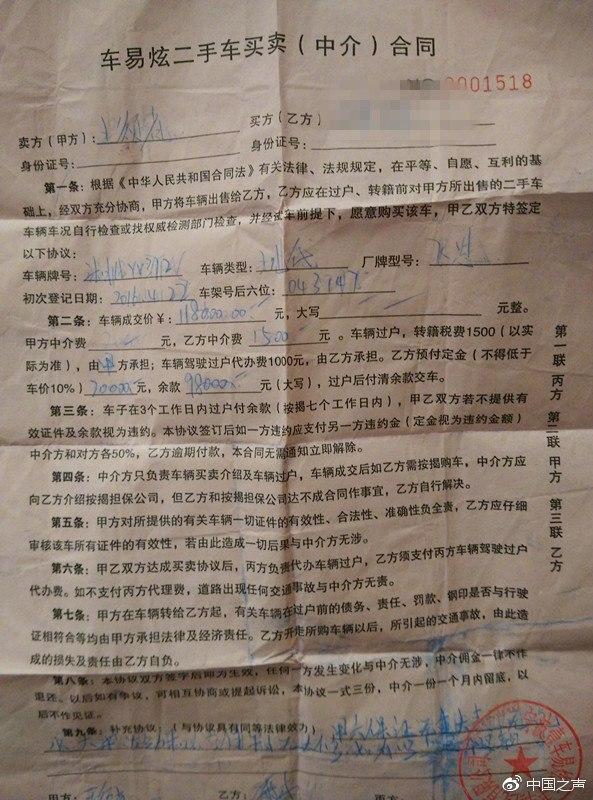 车易炫二手车买卖（中介）合同
0001518
卖方（甲方）： 买方（乙方）
身份证号： 身份证号：
第一条：根据《中华人民共和国合同法》有关法律、法规规定，在平等、自愿、互利的基
础上，经双方充分协商，甲方将车辆出售给乙方，乙方应在过户、转籍前对甲方所出售的二手车
车辆车况自行检查或找权威检测部门检查，并经试车前提下，愿意购买该车，甲乙双方特签定
以下协议：
车辆牌号： 车辆类型： 厂牌型号：
初次登记日期： 车架号后六位：
第二条：车辆成交价¥：118000.00元，大写 元整。
甲方中介费 元，乙方中介费1500元。车辆过户，转籍税费1500（以实
际为准），由 方承担；车辆驾驶过户代办费1000元，由乙方承担。乙方预付定金（不得低于
车价10%）20000元，余款98000元（大写），过户后付清余款交车。
第三条：车子在3个工作日内过户付余款（按揭七个工作日内），甲乙双方若不提供有
效证件及余款视为违约。本协议签订后如一方违约应支付另一方违约金（定金视为违约金额）
中介方和对方各50%，乙方逾期付款，本合同无需通知立即解除。
第四条：中介方只负责车辆买卖介绍及车辆过户，车辆成交后如乙方需按揭购车，中介方应
向乙方介绍按揭担保公司，但乙方和按揭担保公司达不成合同作事宜，乙方自行解决。
第五条：甲方对所提供的有关车辆一切证件的有效性、合法性、准确性负全责，乙方应仔细
审核该车所有证件的有效性，若由此造成一切后果与中介方无涉。
第六条：甲乙双方达成买卖协议后，丙方负责代办车辆过户，乙方须支付丙方车辆驾驶过户
代办费。如不支付丙方代理费，道路出现任何交通事故与中介方无责。
第七条：甲方在车辆转给乙方起，有关车辆在过户前的债务、责任、罚款、钢印是否与行驶
证相符合等均由甲方承担法律及经济责任。乙方开走所购车辆以后，所引起的交通事故，由此造
成的损失及责任由乙方自负。
第八条：本协议双方签字后即为生效，任何一方发生变化与中介无涉，中介佣金一律不作
退还。以后如有争议，可相互协商或提起诉讼，本协议一式三份，中介一份一个月内留底，以
后不作见证。
第九条：补充协议：（与协议具有同等法律效力）
甲方： 乙方：
第一联 丙方 第二联 甲方 第三联 乙方
中国之声